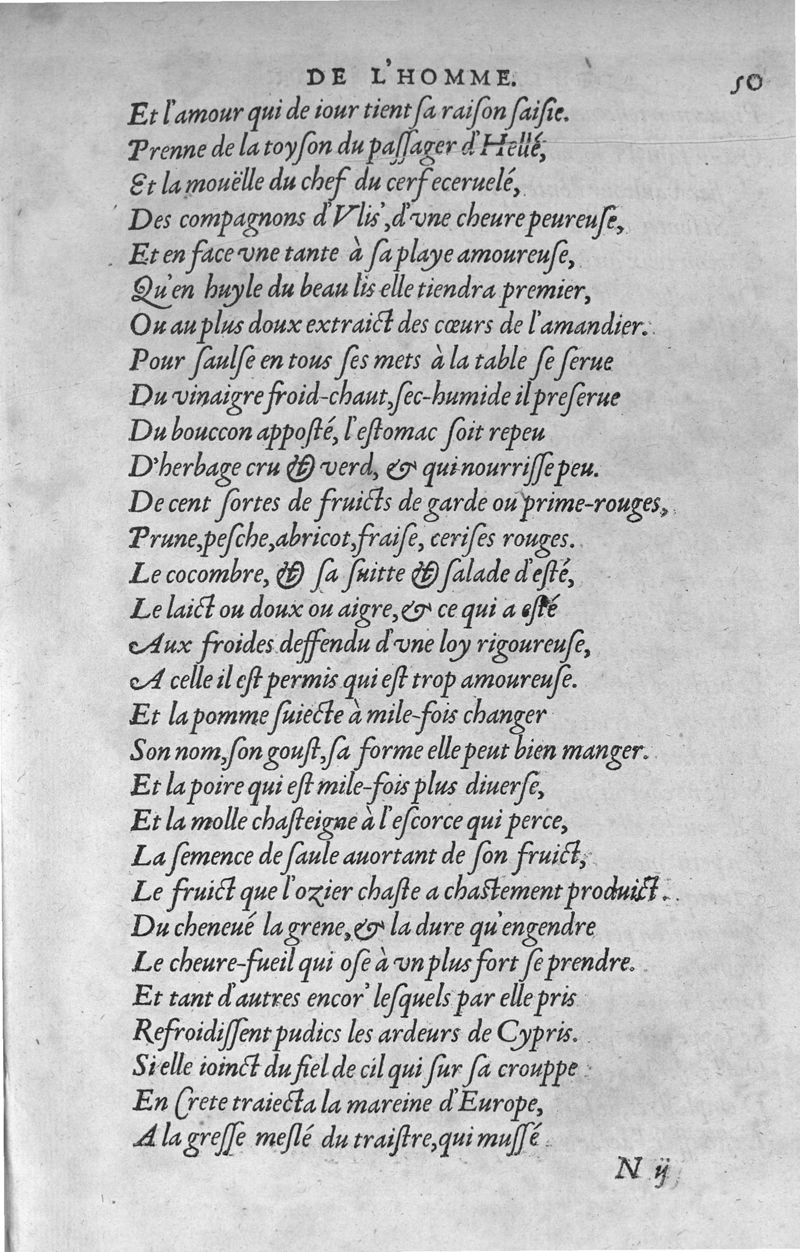 DE L'HOMME. 50
Et l'amour qui de iour tient ſa raiſon ſaiſie.
Prenne de la toyſon du paſſager d'Hellé,
Et la mouëlle du chef du cerf eceruelé,
Des compagnons d'Vliſ', d'vne cheure peureuſe,
Et en face vne tante à ſa playe amoureuſe,
Qu'en huyle du beau lis elle tiendra premier,
Ou au plus doux extraict des cœurs de l'amandier.
Pour ſaulſe en tous ſes mets à la table ſe ſerue
Du vinaigre froid-chaut, ſec-humide il preſerue
Du bouccon appoſté, l'eſtomac ſoit repeu
D'herbage cru & verd, & qui nourriſſe peu.
De cent ſortes de fruicts de garde ou prime-rouges,
Prune, peſche, abricot, fraiſe, ceriſes rouges.
Le cocombre, & ſa ſuitte & ſalade d'eſté,
Le laict ou doux ou aigre, & ce qui a eſté
Aux froides deffendu d'vne loy rigoureuſe,
A celle il eſt permis qui eſt trop amoureuſe.
Et la pomme ſuiecte à mile-fois changer
Son nom, ſon gouſt, ſa forme elle peut bien manger.
Et la poire qui eſt mile-fois plus diuerſe,
Et la molle chaſteigne à l'eſcorce qui perce,
La ſemence de ſaule auortant de ſon fruict,
Le fruict que l'ozier chaſte a chaſtement produict.
Du cheneué la grene, & la dure qu'engendre
Le cheure-fueil qui oſe à vn plus fort ſe prendre.
Et tant d'autres encor' leſquels par elle pris
Refroidiſſent pudics les ardeurs de Cypris.
Si elle ioinct du fiel de cil qui ſur ſa crouppe
En Crete traiecta la mareine d'Europe,
A la greſſe meſlé du traiſtre, qui muſſé
N ij